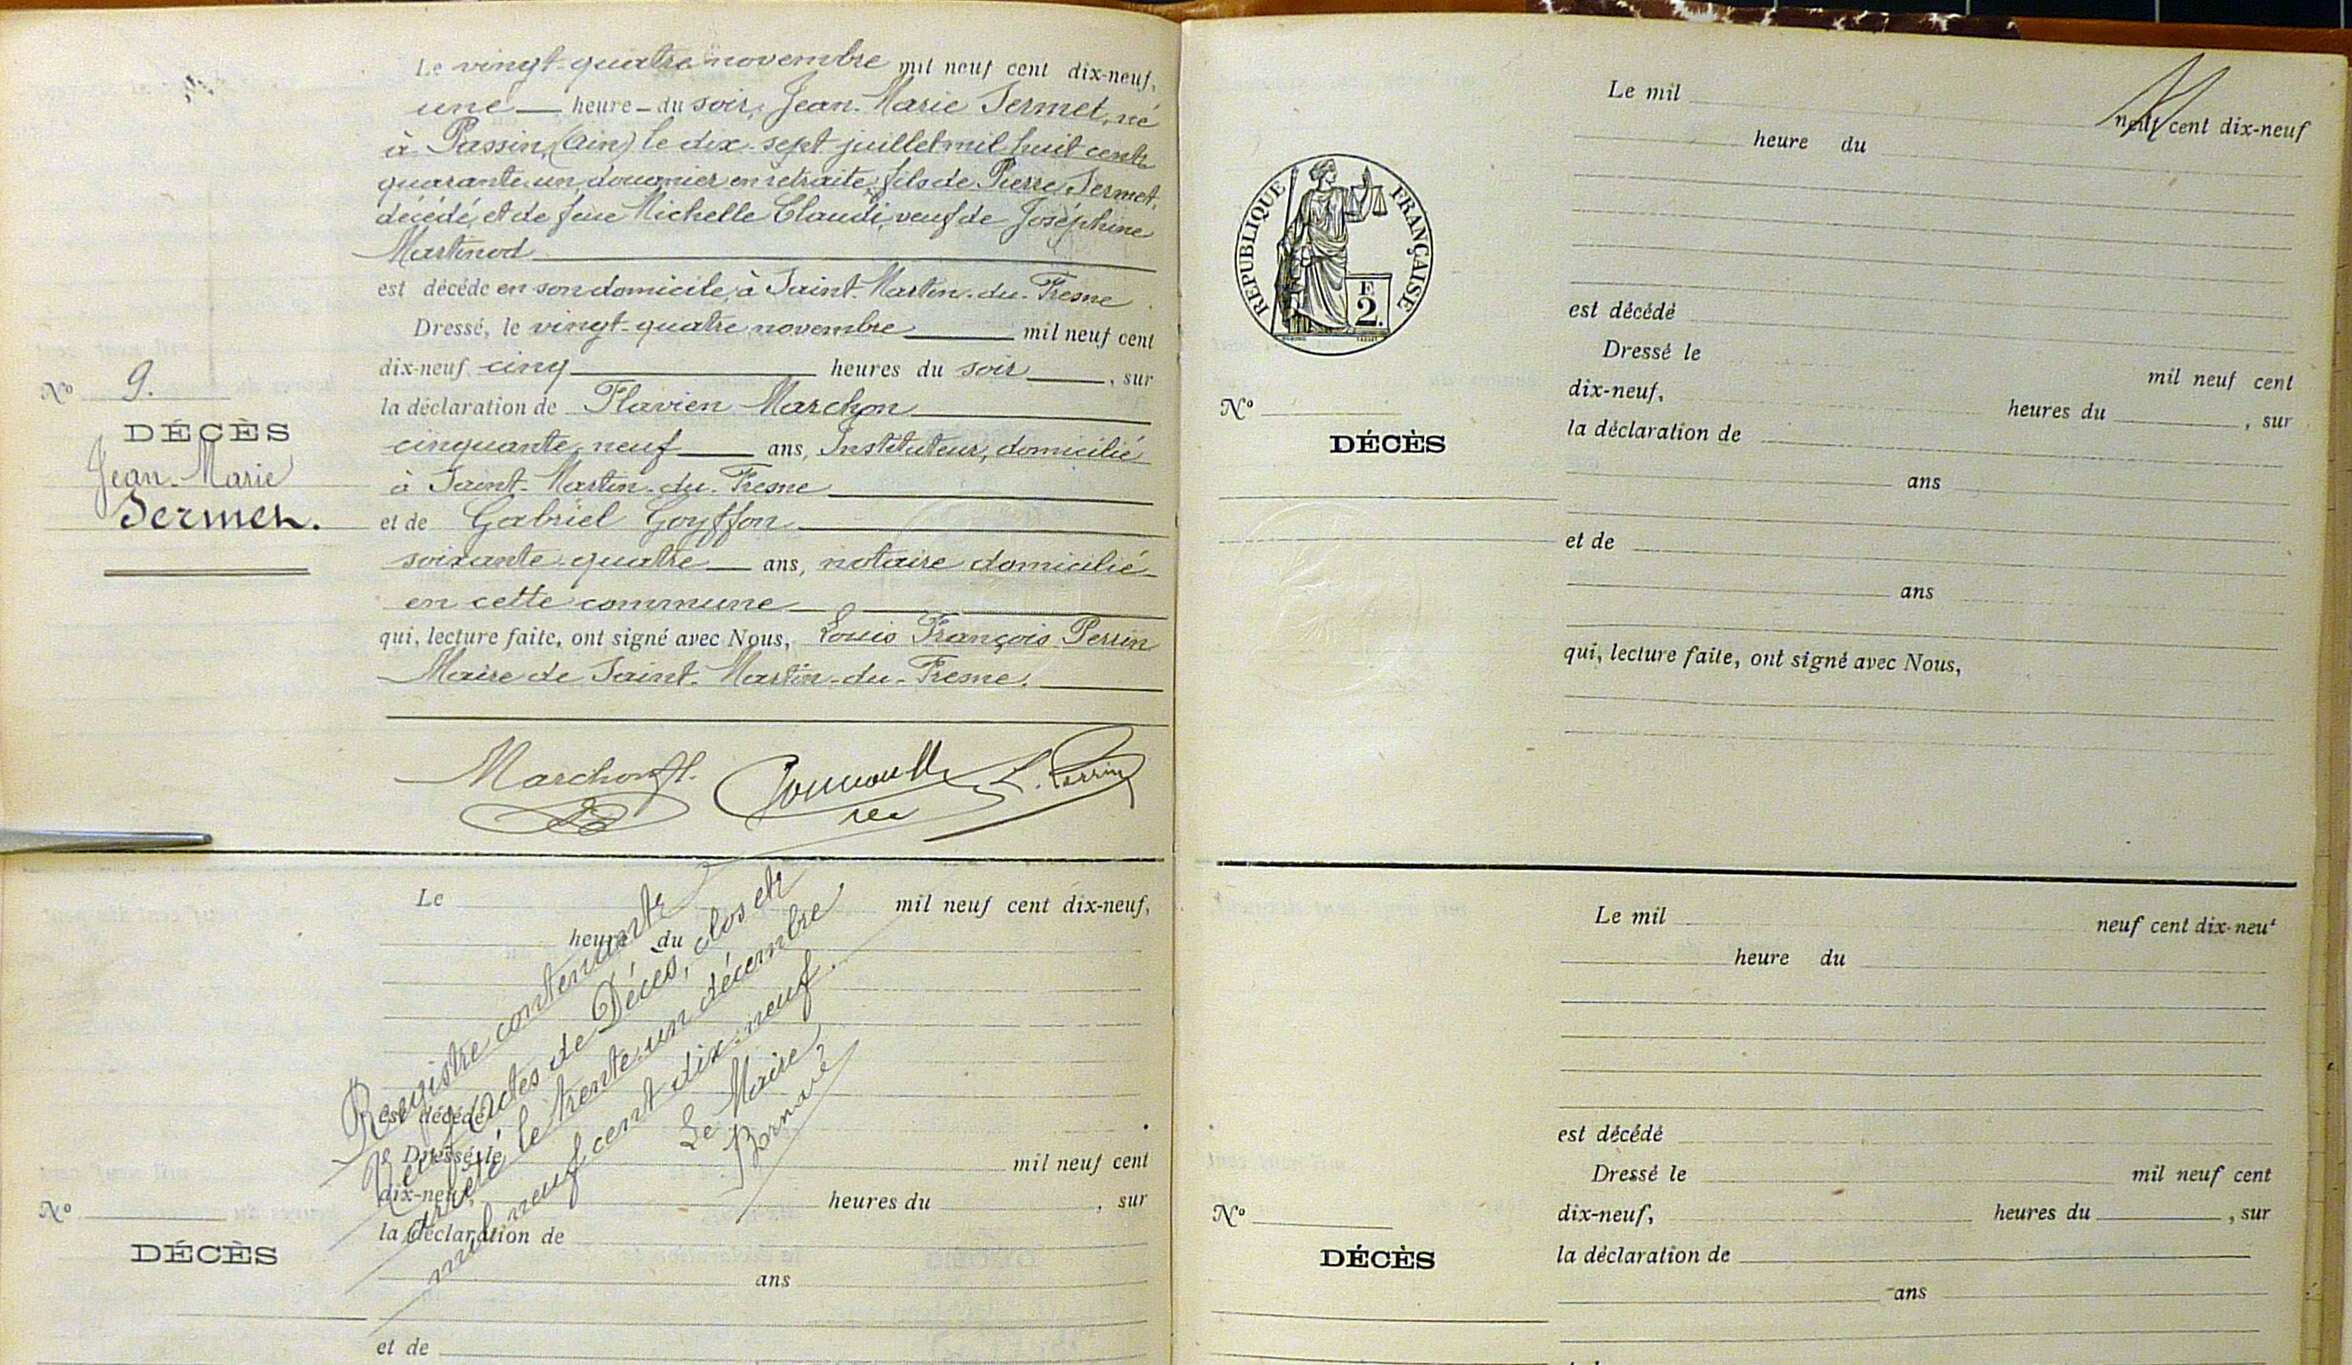 Le vingt-quatre novembre mil neuf cent dix-neuf,
une heure du soir, Jean-Marie Sermet, né
à Passin, (Ain) le dix-sept juillet mil huit cent
quarante un, douanier en retraite, fils de Pierre Sermet,
décédé, et de feue Michelle Claudi, veuf de Joséphine
Martinod
est décédé en son domicile, à Saint-Martin-du-Fresne
Dressé, le vingt-quatre novembre mil neuf cent
dix-neuf, cinq heures du soir, sur
la déclaration de Flavien Marchon
cinquante-neuf ans, Instituteur, domicilié
à Saint-Martin-du-Fresne
et de Gabriel Goyffon
soixante-quatre ans, notaire domicilié
en cette commune
qui, lecture faite, ont signé avec Nous, Louis François Perrin
Maire de Saint-Martin-du-Fresne.
Nº 9.
DÉCÈS
Jean-Marie
Sermet.
Marchon fl. L. Perrin
Le mil neuf cent dix-neuf,
heure du
est décédé
Dressé, le mil neuf cent
dix-neuf, heures du , sur
la déclaration de
ans
et de
Nº
DÉCÈS
Registre contenant
Neuf Actes de Décès, clos et
arrêté le trente-un décembre
mil neuf cent dix-neuf.
Le Maire,
Le mil neuf cent dix-neuf
heure du
est décédé
Dressé le mil neuf cent
dix-neuf, heures du , sur
la déclaration de
ans
et de
ans
qui, lecture faite, ont signé avec Nous,
RÉPUBLIQUE FRANÇAISE
F
2.
Nº
DÉCÈS
Le mil neuf cent dix-neuf
heure du
est décédé
Dressé le mil neuf cent
dix-neuf, heures du , sur
la déclaration de
ans
Nº
DÉCÈS